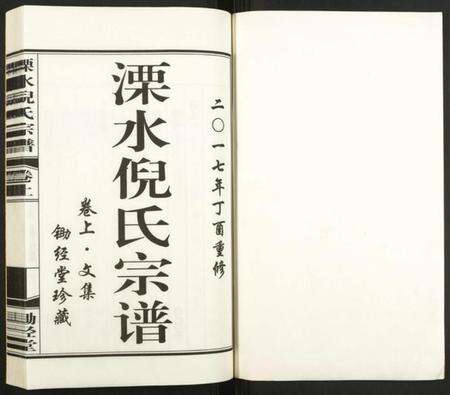 二〇一七年丁酉重修
溧水倪氏宗谱
卷上·文集
锄经堂珍藏
溧水倪氏宗谱
卷上
锄经堂